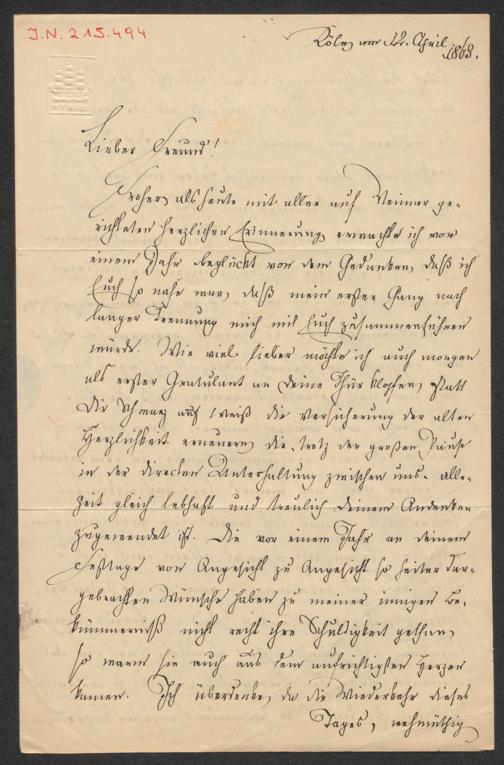 J.N. 215.494
Köln am 22. April 1868.
Lieber Freund!
Froher als heute mit aller auf Weimar ge-
richteten herzlichen Erinnerung erwachte ich vor
einem Jahr beglückt von dem Gedanken, daß ich
Euch so nahe war, daß mein erster Gang nach
langer Trennung mich mit Euch zusammenführen
würde. Wie viel lieber möchte ich auch morgen
als erster Gratulant an Deine Thür klopfen, statt
Dir schwarz auf weiß die Versicherung der alten
Herzlichkeit erneuern, die trotz der großen Pause
in der directen Unterhaltung zwischen uns - alle-
zeit gleich lebhaft und treulich Deinem Andenken
zugewendet ist. Die vor einem Jahr an Deinem
Festtage von Angesicht zu Angesicht so heiter dar-
gebrachten Wünsche haben zu meiner innigen Be-
kümmerniß nicht recht ihre Schuldigkeit gethan,
so warm sie auch aus dem aufrichtigsten Herzen
kamen. Ich überdenke, da die Wiederkehr dieses
Tages, wehmüthig